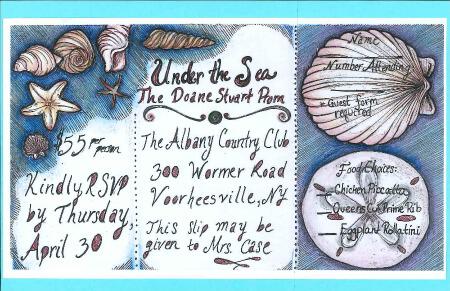 $55 per person
Kindly RSVP
by Thursday,
April 30
Under the Sea
The Doane Stuart Prom
The Albany Country Club
300 Wormer Road
Voorheesville, NY
This slip may be
given to Mrs. Case
Name
Number Attending
* Guest form
required
Food Choices:
Chicken Piccatta
Queens Cut Prime Rib
Eggplant Rollatini